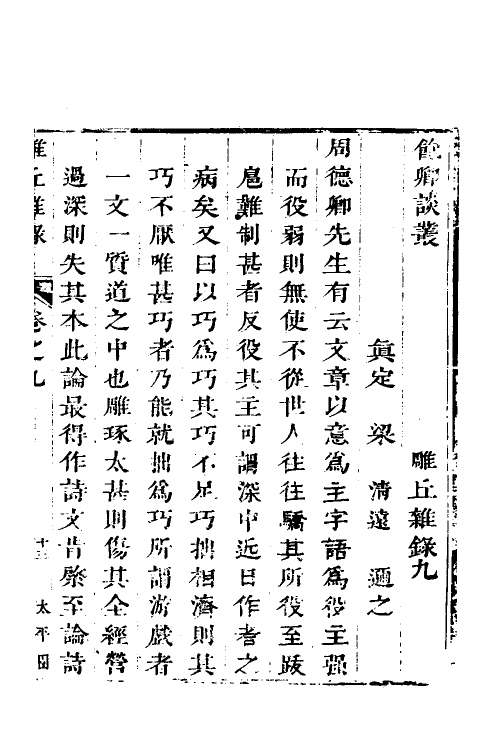 飽卿談叢　雕丘雜錄九
眞定　梁　清遠　邇之
周德卿先生有云文章以意爲主字語爲役主强
而役弱則無使不從世人往往驕其所役至跋
扈難制甚者反役其主可謂深中近日作者之
病矣又曰以巧爲巧其巧不足巧拙相濟則其
巧不厭唯甚巧者乃能就拙爲巧所謂游戲者
一文一質道之中也雕琢太甚則傷其全經營
過深則失其本此論最得作詩文肯綮至論詩
雕丘雜錄　卷之九　太平園